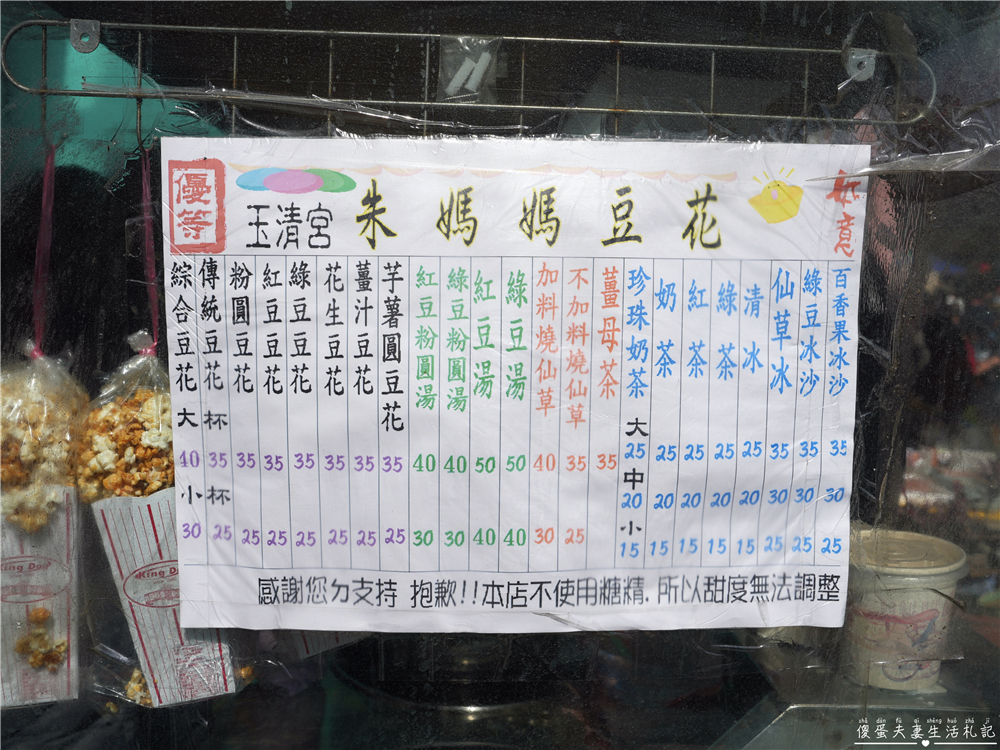 優等
玉清宮 朱媽媽豆花
如意
綜合豆花 大杯 40 小杯 30
傳統豆花 35 25
粉圓豆花 35 25
紅豆豆花 35 25
綠豆豆花 35 25
花生豆花 35 25
薑汁豆花 35 25
芋薯圓豆花 35 25
紅豆粉圓湯 40 30
綠豆粉圓湯 40 30
紅豆湯 50 40
綠豆湯 50 40
加料燒仙草 40 30
不加料燒仙草 35 25
薑母茶 35
珍珠奶茶 大 25 中 20 小 15
奶茶 25 20 15
紅茶 25 20 15
綠茶 25 20 15
清冰 25 20 15
仙草冰 35 30 25
綠豆冰沙 35 30 25
百香果冰沙 35 30 25
感謝您ㄉ支持 抱歉!!本店不使用糖精.所以甜度無法調整
King Dog
shǎ dàn fū qī shēng huó zhá jì
傻蛋夫妻生活札記